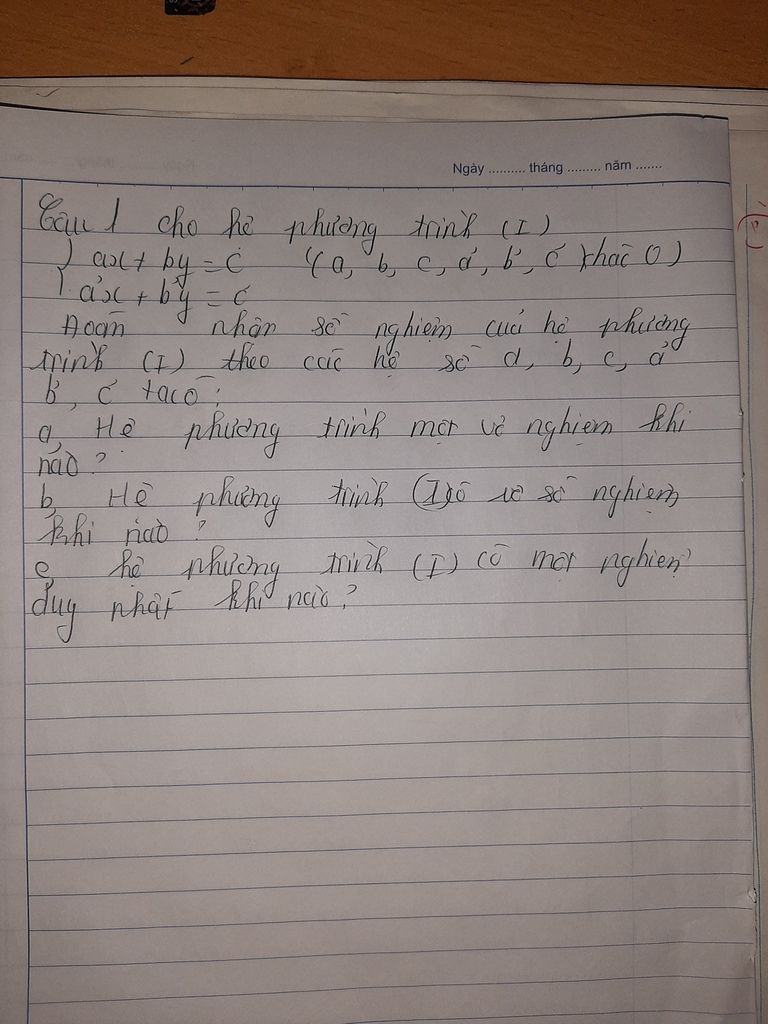 Ngày .......... tháng ......... năm .......
Câu 1 cho hệ phương trình (I)
{ ax + by = c (a, b, c, a', b', c' khác 0)
{ a'x + b'y = c'
Đoán nhận số nghiệm của hệ phương
trình (I) theo các hệ số a, b, c, a'
b', c' ta có:
a, Hệ phương trình một vô nghiệm khi
nào?
b, Hệ phương trình (I) có vô số nghiệm
khi nào?
c, hệ phương trình (I) có một nghiệm
duy nhất khi nào?